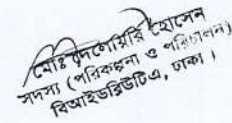 হোসেন
সদস্য (পরিকল্পনা ও পরিচালন)
বিআইডব্লিউটিএ, ঢাকা।